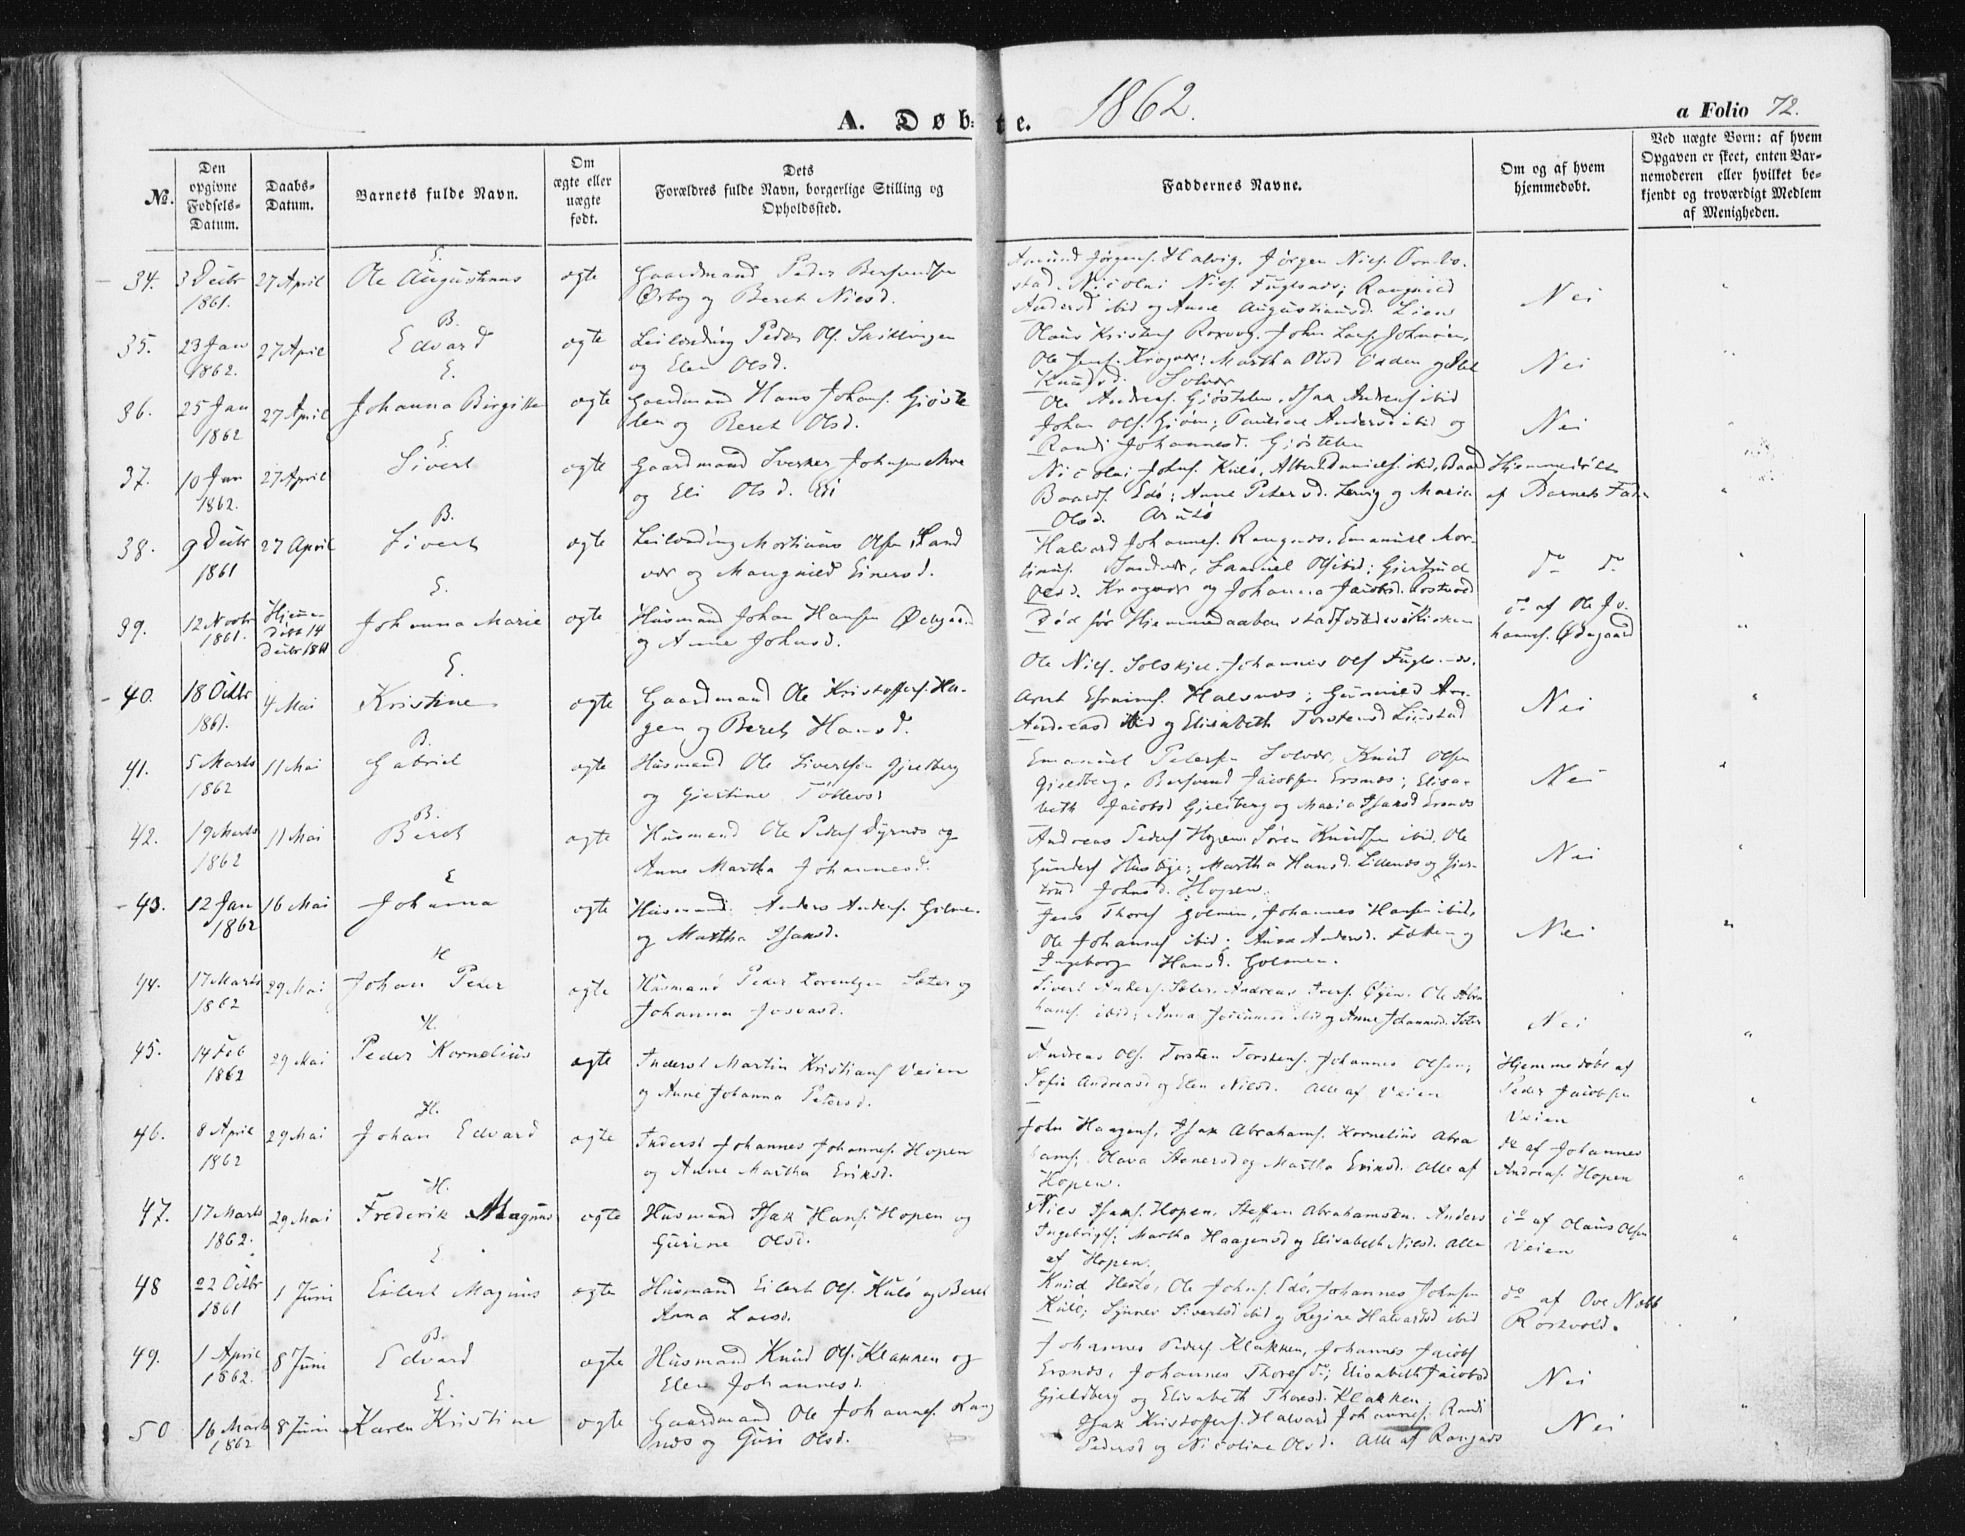 A. Døbte. 1862. a Folio 72.
No.
Den opgivne Fødsels-Datum.
Daabs-Datum.
Barnets fulde Navn.
Om ægte eller uægte født.
Dets Forældres fulde Navn, borgerlige Stilling og Opholdssted.
Faddernes Navne.
Om og af hvem hjemmedøbt.
Ved uægte Børn: af hvem Opgaven er skeet, enten Barnemoderen eller hvilket bekjendt og troværdigt Medlem af Menigheden.
E.
34. 3 Decbr 27 April Ole Augustinus ægte Gaardmand Peder
1861. Ørbog og Beret Nielsd.
Amund Jørgens. Halvig. Jørgen Niels.
Nicolai Niels. Fuglsnes; Rangnild
Andersd ibid og Anne Augustinusd. Lien
Nei
B.
35. 23 Jan 27 April Edvard ægte Leilænding Peder Ols. Skillingen
1862. og Elen Olsd.
Olaus Kristens Roxvog. John Lars. Johnsøen,
Ole Jens. Krogvær; Martha Olsd
Knudsd. Solvær
Nei
E.
36. 25 Jan 27 April Johanna Birgitte ægte Gaardmand Hans Johans. Gjøste
1862 len og Beret Olsd.
Ole Andreas. Gjøstelen, Isak Andreas ibid
Johan Ols. Gjøen; Pauline Andersd ibid og
Randi Johannesd. Gjøstelen
Nei
E.
37. 10 Jan 27 April Sivert ægte Gaardmand Sverker Johnsen
1862. og Eli Olsd.
Nicolai Johns. Kulø, Albert Daniels. ibid, Baard
Baards. Edø; Anne Petersd. Lervig og Maria
Olsd.
Hjemmedøbt
af Barnets Fader
B.
38. 9 Decbr 27 April Sivert ægte Leilænding Mortinus Olsen Sand
1861 vær og Mangnild Einersd.
Halvard Johannes. Rangnes. Emanuel Mor-
tinus. Sandvær, Samuel Ols ibid; Gjertrud
Olsd. Krogvær og Johanna Jacobsd. Rostvold
do do
E.
39. 12 Novbr Hjemme- Johanna Marie ægte Husmand Johan Hansen Ødegaard
1861. døbt 14 og Anne Johnsd.
Decbr 1861
Død før Hjemmedaaben stadfæstedes i Kirken
do af Ole Jo-
hannes. Ødegaard
E.
40. 18 Octbr 4 Mai Kristine ægte Gaardmand Ole Kristoffers. Ha-
1861. gen og Beret Hansd.
Ole Niels. Solskjel. Johannes Ols Fuglsnes.
Arnt Halsnes; Gunnild
Andreasd ibid og Elisabeth Torstensd Liustad
Nei
B.
41. 5 Marts 11 Mai Gabriel ægte Husmand Ole Sivertsen Gjeldberg
1862 og Gjertine
Emanuel Petersen Solvær, Knud Olsen
Gjeldberg, Bersvend Jacobsen Ersnes; Elisa-
beth Jacobsd Gjeldberg og Maria Isaksd Ersnes
Nei
B.
42. 19 Marts 11 Mai Beret ægte Husmand Ole Peders Dyrnes og
1862 Anne Martha Johannesd.
Andreas Peders Hopen. Søren Knudsen ibid, Ole
Gunders Husbye; Martha Hansd. Lillenes og Gjer-
trud Johnsd. Hopen.
Nei
E
43. 12 Jan 16 Mai Johanna ægte Husmand Anders Anders. Golmen
1862 og Martha Isaksd.
Jens Thores Golmen, Johannes Hansen ibid,
Ole Johannes ibid; Anna Andersd. og
Ingeborg Hansd. Golmen.
Nei
H
44. 17 Marts 29 Mai Johan Peder ægte Husmand Peder Lorentzen Sæter og
1862 Johanna Josvasd.
Sivert Anders. Sæter. Andreas Ivers. Øyen. Ole Abra
hams. ibid; Anna ibid og Anne Johannesd. Sæter
Nei
H.
45. 14 Feb 29 Mai Peder Kornelius ægte Inderst Martin Kristians Veien
1862 og Anne Johanna Petersd.
Andreas Ols. Torsten Torstens. Johannes Olsen;
Sofia Andreasd og Elen Nielsd. Alle af Veien
Hjemmedøbt af
Peder Jacobsen
Veien
H.
46. 8 April 29 Mai Johan Edvard ægte Inderst Johannes Johannes. Hopen
1862 og Anne Martha Eriksd.
John Haagens, Isak Abrahams. Kornelius Abra
hams; Olava Steners d og Martha Eriksd. Alle af
Hopen.
do af Johannes
Andreas. Hopen
H.
47. 17 Marts 29 Mai Frederik Magnus ægte Husmand Isak Hans. Hopen og
1862. Gurine Olsd.
Niels Isaks. Hopen, Steffen Abrahamsen. Anders
Ingebrigts; Martha Haagensd og Elisabeth Nielsd. Alle
af Hopen.
do af Olaus Olsen
Veien
E.
48 22 Octbr 1 Juni Eilert Magnus ægte Husmand Eilert Ols. Kulø og Beret
1861 Anna Larsd.
Knud Hestø, Ole Johns. Edø, Johannes Johnsen
Kulø; Synnev Sivertsd ibid og Regine Halvardsd ibid
do af Ove Nebb
Rostvold.
B.
49. 1 April 8 Juni Edvard ægte Husmand Knud Ols. Klakken og
1862. Elen Johannesd.
Johannes Peders Klakken, Johannes Jacobs
Ersnes, Johannes Thores do; Elisabeth Jacobsd
Gjeldberg og Elisabeth Thoresd. Klakken
Nei
E.
50 16 Marts 8 Juni Karen Kristine ægte Gaardmand Ole Johannes. Rang
1862 nes og Guri Olsd.
Isak Kristoffers. Halvard Johannes. Randi
Pedersd og Nicoline Olsd. Alle af Rangnes
Nei